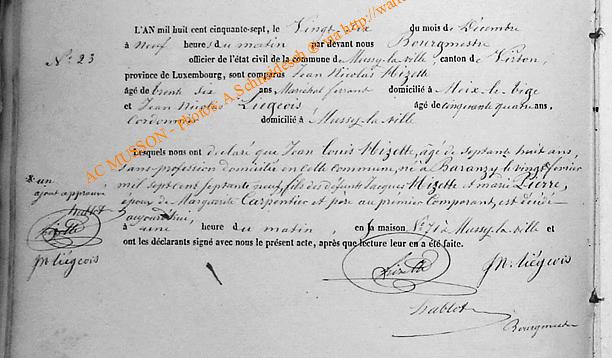 N° 23
L'AN mil huit cent cinquante-sept, le Vingt Six du mois de Décembre
à Neuf heures du matin par devant nous Bourgmestre
officier de l'état civil de la commune de Mussy-la-ville canton de Virton,
province de Luxembourg, sont comparus Jean Nicolas Hizette
âgé de trente six ans, Marechal ferrant domicilié à Meix-le-tige
et Jean Nicolas Liégeois âgé de cinquante quatre ans,
Cordonnier domicilié à Mussy-la-ville
Lesquels nous ont déclaré que Jean Louis Hizette, âgé de septante huit ans,
sans profession domicilié en cette commune, né à Baranzy le vingt fevrier
mil sept cent septante neuf, fils des défunts Jacques Hizette et marie Pierre,
époux de Marguerite Carpentier et pere au premier Comparant, est décédé
aujourd'hui,
à une heure du matin, en la maison N° 71 à Mussy-la-ville et
ont les déclarants signé avec nous le présent acte, après que lecture leur en a été faite.
un
ajout approuvé
hablot
hizette
jn. liégeois
hizette
jn. liégeois
hablot
Bourgmestre
AC MUSSON - Photo © A.Schneidesch @ via http://